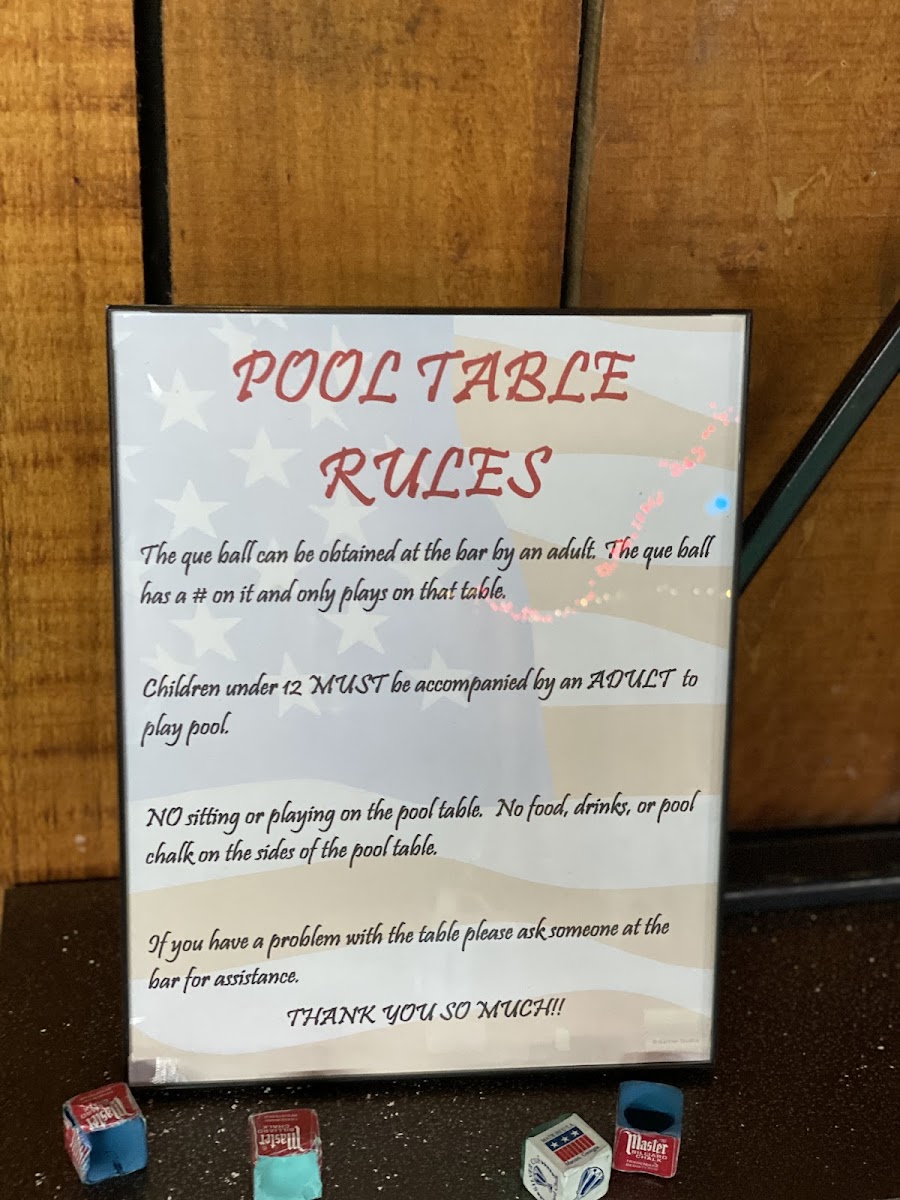 POOL TABLE
RULES
The que ball can be obtained at the bar by an adult. The que ball
has a # on it and only plays on that table.
Children under 12 MUST be accompanied by an ADULT to
play pool.
NO sitting or playing on the pool table. No food, drinks, or pool
chalk on the sides of the pool table.
If you have a problem with the table please ask someone at the
bar for assistance.
THANK YOU SO MUCH!!
Master
Master
Master
BILLIARD
CHALK